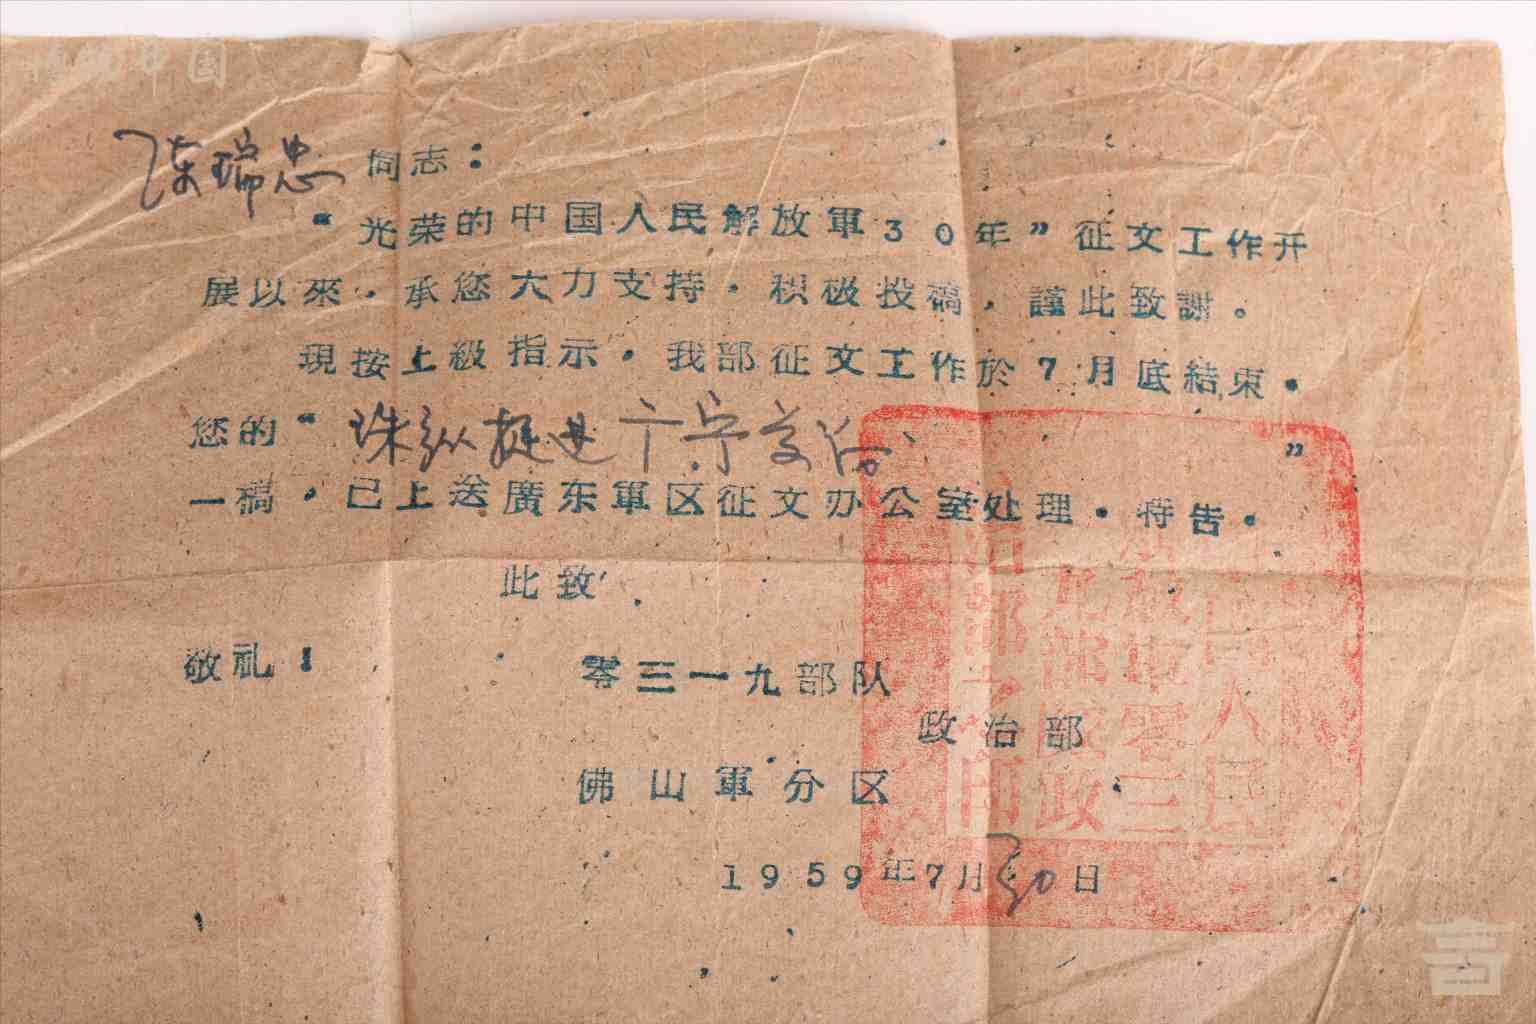 陈瑞忠同志：
“光荣的中国人民解放軍30年”征文工作开
展以來，承您大力支持，积极投稿，謹此致謝。
現按上級指示，我部征文工作於7月底結束。
您的“珠纵挺进 ”
一稿，已上送廣东軍区征文办公室处理，特告。
此致
敬礼！
零三一九部队
政治部
佛山軍分区
1959年7月30日